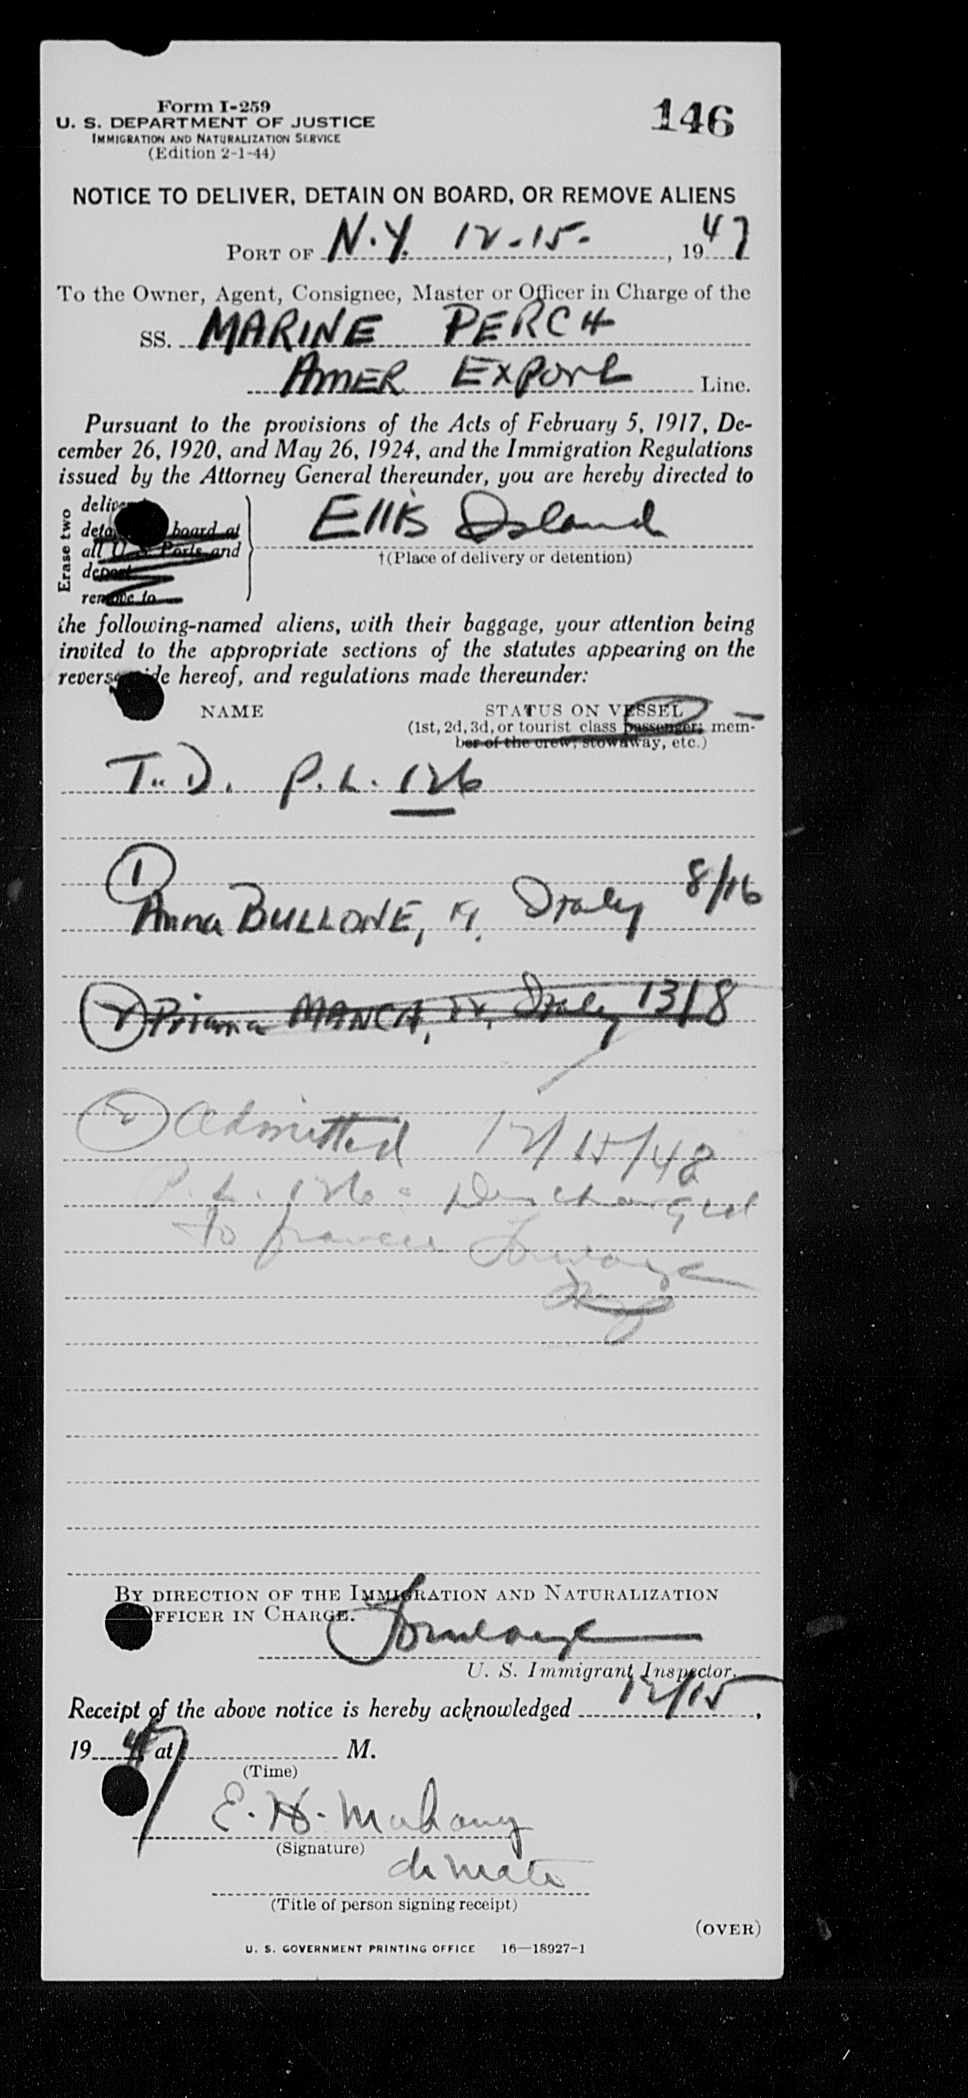 Form I-259
U. S. DEPARTMENT OF JUSTICE
IMMIGRATION AND NATURALIZATION SERVICE
(Edition 2-1-44)
146
NOTICE TO DELIVER, DETAIN ON BOARD, OR REMOVE ALIENS
PORT OF N.Y. 12-15-, 1947
To the Owner, Agent, Consignee, Master or Officer in Charge of the
SS. MARINE PERCH
AMER EXPORT Line.
Pursuant to the provisions of the Acts of February 5, 1917, De-
cember 26, 1920, and May 26, 1924, and the Immigration Regulations
issued by the Attorney General thereunder, you are hereby directed to
Erase two
deliver
board at
all U. S. Ports and
deport
remove to
Ellis Island
†(Place of delivery or detention)
the following-named aliens, with their baggage, your attention being
invited to the appropriate sections of the statutes appearing on the
reverse side hereof, and regulations made thereunder:
NAME
STATUS ON VESSEL
(1st, 2d, 3d, or tourist class passenger; mem-
ber of the crew, stowaway, etc.)
T.D. P.L. 126
1
Anna BULLONE, Italy 8/16
2 Prima MANCA, Italy 13/8
2 Admitted 12/15/48
P.L. 126 Discharged
to
BY DIRECTION OF THE IMMIGRATION AND NATURALIZATION
OFFICER IN CHARGE.
U. S. Immigrant Inspector.
Receipt of the above notice is hereby acknowledged 12/15,
1947 at M.
(Time)
E. H. Mahany
(Signature)
ch mate
(Title of person signing receipt)
(OVER)
U. S. GOVERNMENT PRINTING OFFICE 16—18927-1